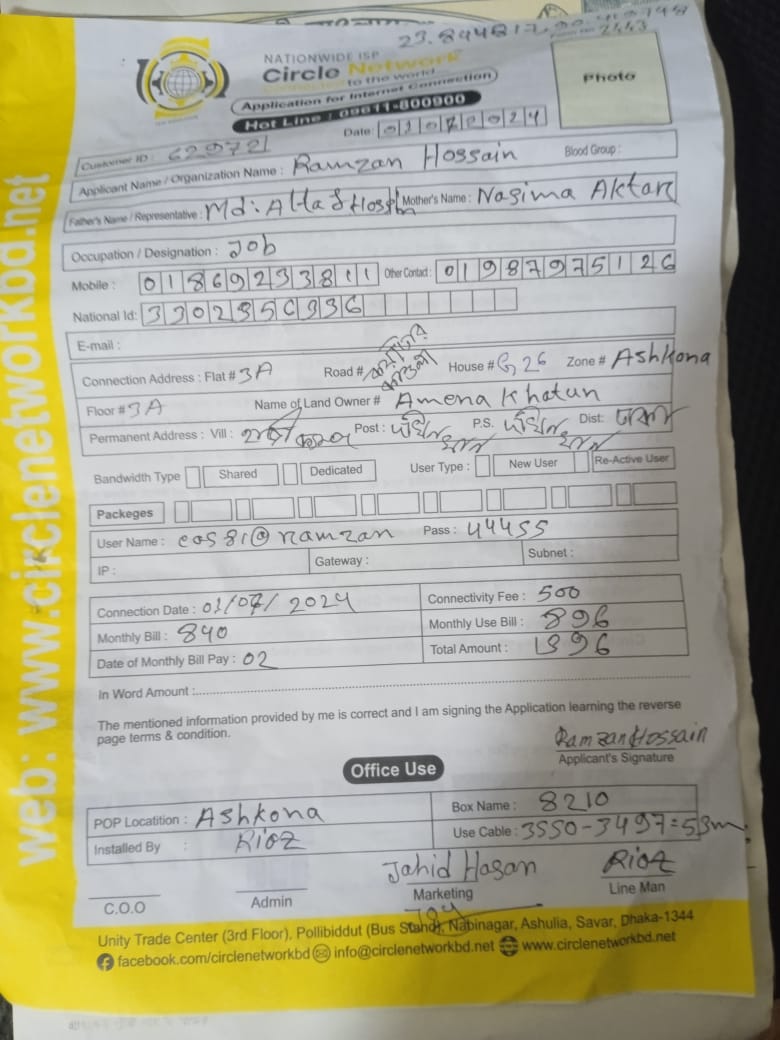 NATIONWIDE ISP
2443
Circle Network
Connected to the world
Application for Internet Connection
Hot Line : 09611-800900
Photo
Date: 01072024
Customer ID : 62972
Applicant Name / Organization Name : Ramzan Hossain Blood Group :
Father's Name / Representative : Md: Altaf Hossain Mother's Name : Nasima Aktar
Occupation / Designation : Job
Mobile : 01869233811 Other Contact : 01987975126
National Id:
E-mail :
Connection Address : Flat # 3A Road # House # 626 Zone # Ashkona
Floor # 3A Name of Land Owner # Amena Khatun
Permanent Address : Vill : Post : P.S. Dist:
Bandwidth Type Shared Dedicated User Type : New User Re-Active User
Packeges
User Name : cos81@ramzan Pass : 44455
IP : Gateway : Subnet :
Connection Date : 01/07/2024 Connectivity Fee : 500
Monthly Bill : 840 Monthly Use Bill : 896
Date of Monthly Bill Pay : 02 Total Amount : 1396
In Word Amount :
The mentioned information provided by me is correct and I am signing the Application learning the reverse
page terms & condition.
Ramzan Hossain
Applicant's Signature
Office Use
POP Locatition : Ashkona Box Name : 8210
Installed By : Rioz Use Cable : 3550-3497=53m
Jahid Hasan Rioz
C.O.O Admin Marketing Line Man
Unity Trade Center (3rd Floor), Pollibiddut (Bus Stand), Nabinagar, Ashulia, Savar, Dhaka-1344
facebook.com/circlenetworkbd info@circlenetworkbd.net www.circlenetworkbd.net
web: www.circlenetworkbd.net